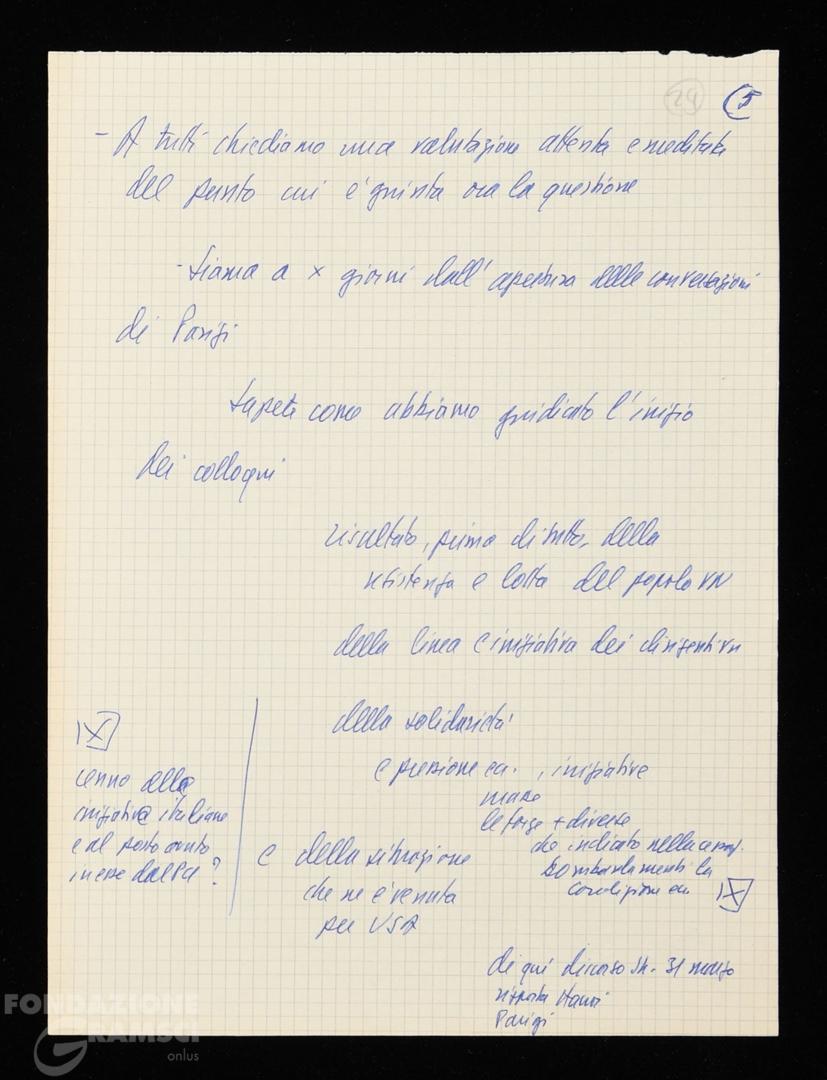 24
5
- A tutti chiediamo una valutazione attenta e meditata
del punto cui è giunta ora la questione
- siamo a x giorni dall'apertura delle conversazioni
di Parigi
sapete come abbiamo giudicato l'inizio
dei colloqui
risultato, prima di tutto, della
resistenza e lotta del popolo VN
della linea e iniziativa dei dirigenti VN
della solidarietà
e pressione ecc. , iniziative
mosse
le forze + diverse
che indicato nella cessaz.
bombardamenti la
condizione ecc X
X
cenno alle
iniziative italiane
e al posto avuto
in esse dal Pci ?
e della situazione
che ne è venuta
per USA
di qui discorso Jh. 31 marzo
risposta Hanoi
Parigi
FONDAZIONE
GRAMSCI
onlus